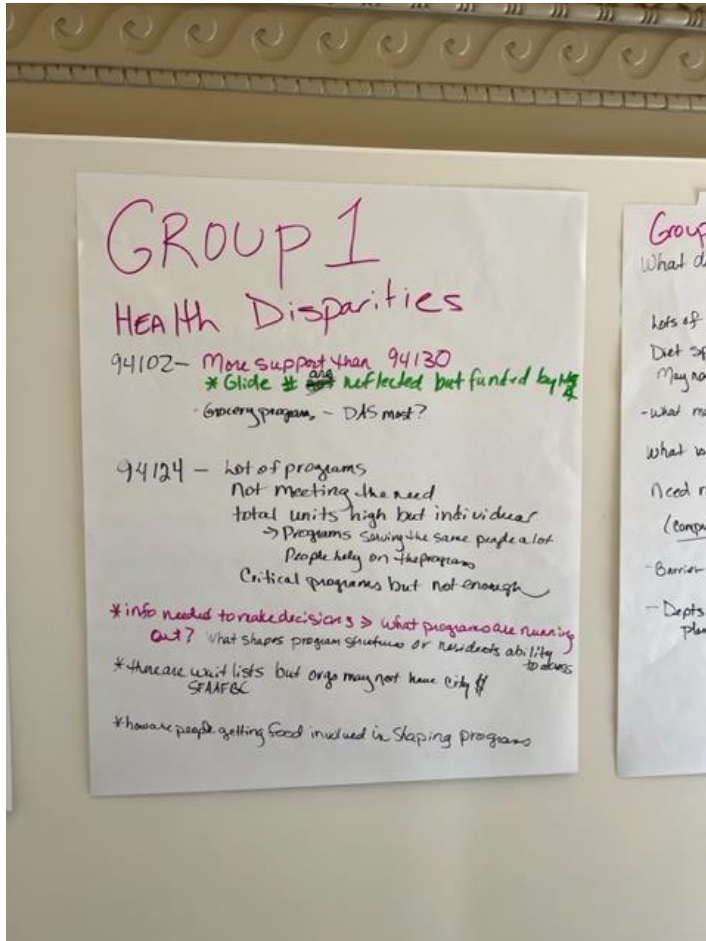 GROUP 1
HEAlth Disparities
94102 - More support than 94130
* Glide # are reflected but funded by
- Grocery programs - DAS most?
94124 - Lot of programs
not meeting the need
total units high but individual
→ Programs serving the same people a lot
People rely on the programs
Critical programs but not enough
* info needed to make decisions > what programs are running
out? What shapes program structures or residents ability
to access
* there are wait lists but orgs may not have city $
SFAAFBC
* how are people getting food involved in shaping programs
Group
What d
Lots of
Diet sp
May no
- What m
What w
Need r
(comp
- Barrier
- Depts
plan